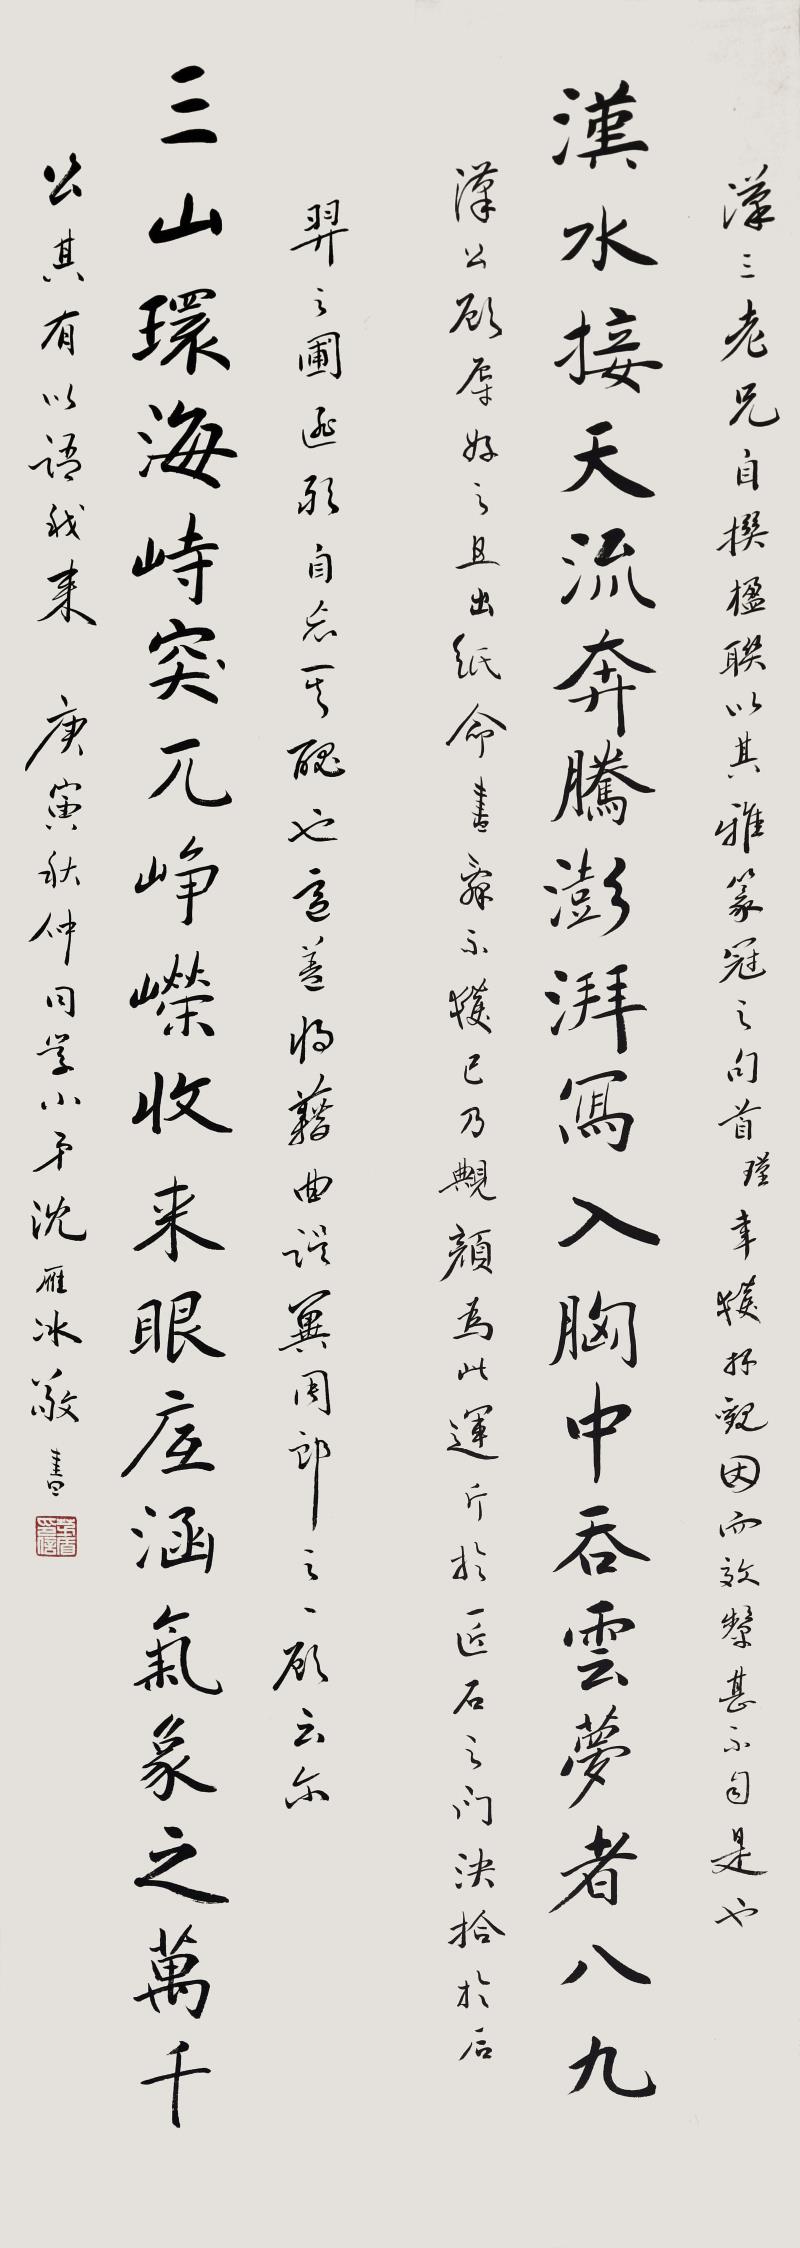 漢三老兄自撰楹聯以其雅篆冠之句首瑾幸獲抔觀因而效顰甚不自是也
漢水接天流奔騰澎湃寫入胸中吞雲夢者八九
漢公顧辱好之且出紙命書辭不獲已乃靦顏為此運斤於匠石之門決拾於后
羿之圃逾形自忘其醜也意蓋將藉曲誤冀周郎之一顧云尔
三山環海峙突兀峥嶸收来眼底涵氣象之萬千
公其有以語我来 庚寅秋仲同学小弟沈雁冰敬書